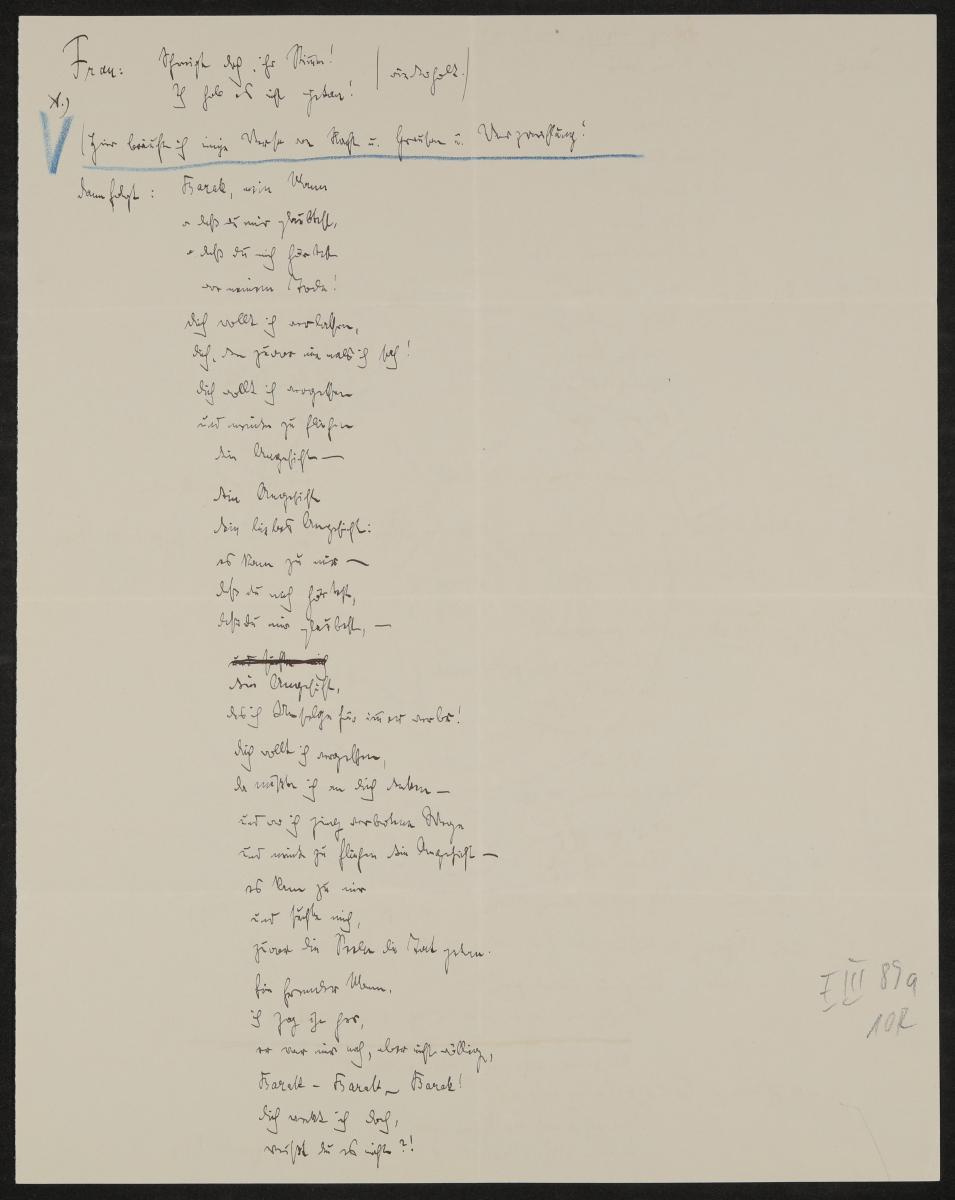 Frau: Schweigt doch, ihr Stimmen! (wiederholt.)
Ich hab es nicht getan!
x.)
(Hier bräuchte ich einige Verse von Nacht u. Grausen u. Verzweiflung!
dann folgt: Barak, mein Mann
o daß du mir glaubtest,
o daß du mich hörtest
vor meinem Tode!
dich wollt ich verlassen,
dich, den zuvor niemals ich sah!
dich wollt ich vergessen
und meinte zu fliehen
dein Angesicht —
dein Angesicht
dein liebes Angesicht:
es kam zu mir —
daß du mich hörtest,
daß du mir glaubest, —
dein Angesicht,
das ich für immer verlor!
dich wollt ich vergessen,
da mußte ich an dich denken —
und wo ich ging verbotene Wege
und meinte zu fliehen dein Angesicht —
es kam zu mir
und suchte mich,
zuvor die Seele die Tat getan.
Ein fremder Mann,
ich zog ihn her,
er war mir nah, aber nicht völlig,
Barak – Barak – Barak!
dich weckt ich doch,
weißt du es nicht?!
I III 89a
10R